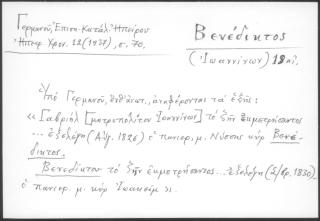 Γερμανοῦ, Ἐπισκ. Κατάλ. Ἠπείρου
Ἠπειρ. Χρον. 12 (1937), σ. 70.
Βενέδικτος
(Ἰωαννίνων) 19 αἰ.
Ὑπὸ Γερμανοῦ, ἀναφέρονται τὰ ἑξῆς:
«Γαβριὴλ [μητροπολίτου Ἰωαννίνων] τὸ ζῆν ἐκμετρήσαντος
... ἐξελέγη (Αὔγ. 1826) ὁ πανιερ. μ. Νύσσης κὺρ Βενέ-
δικτος.
Βενεδίκτου τὸ ζῆν ἐκμετρήσαντος ... ἐξελέγη (1830)
ὁ πανιερ. μ. κὺρ Ἰωακείμ».